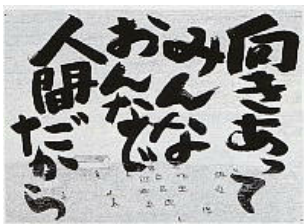 向きあって
みんな
おんなじ
人間だから